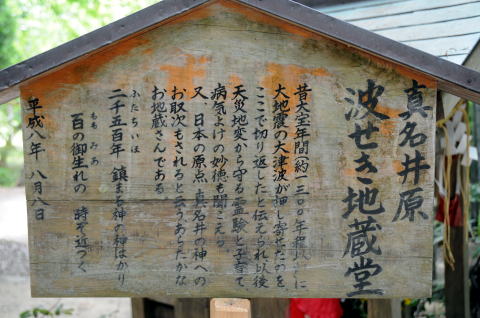 真名井原
波せき地蔵堂
昔大宝年間(約一三〇〇年程以前)に
大地震の大津波が押し寄せたのを
ここで切り返したと伝えられ以後
天災地変から守る霊験と子育て
病気よけの妙徳も聞こえる
又、日本の原点、真名井の神への
お取次もされると云うあらたかな
お地蔵さんである
ふたちいほ
二千五百年 鎮まる神の神はかり
ももみあ
百の御生れの 時ぞ近づく
平成八年 八月八日